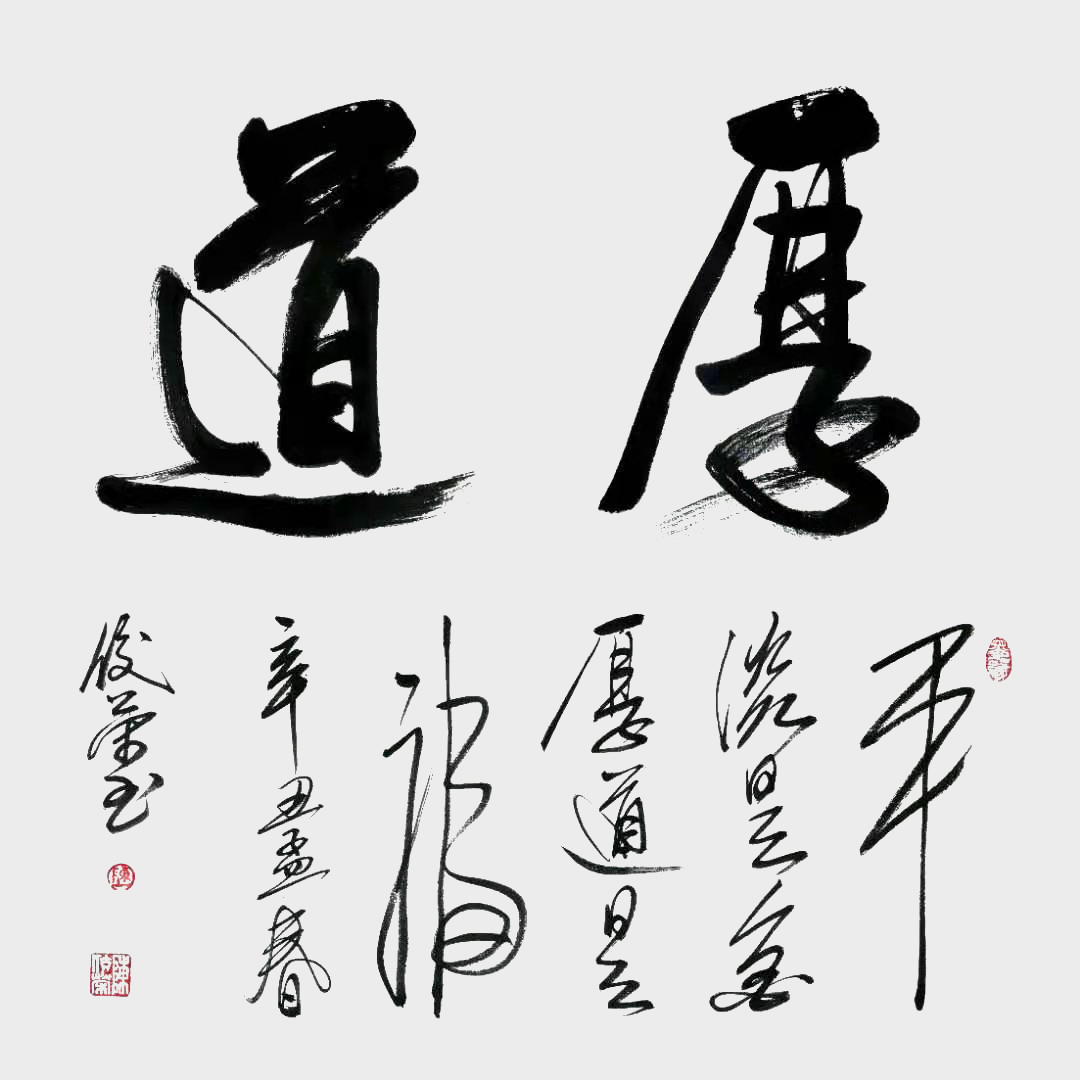 厚道
平
淡是金
厚道是
福
辛丑孟春
俊荣书